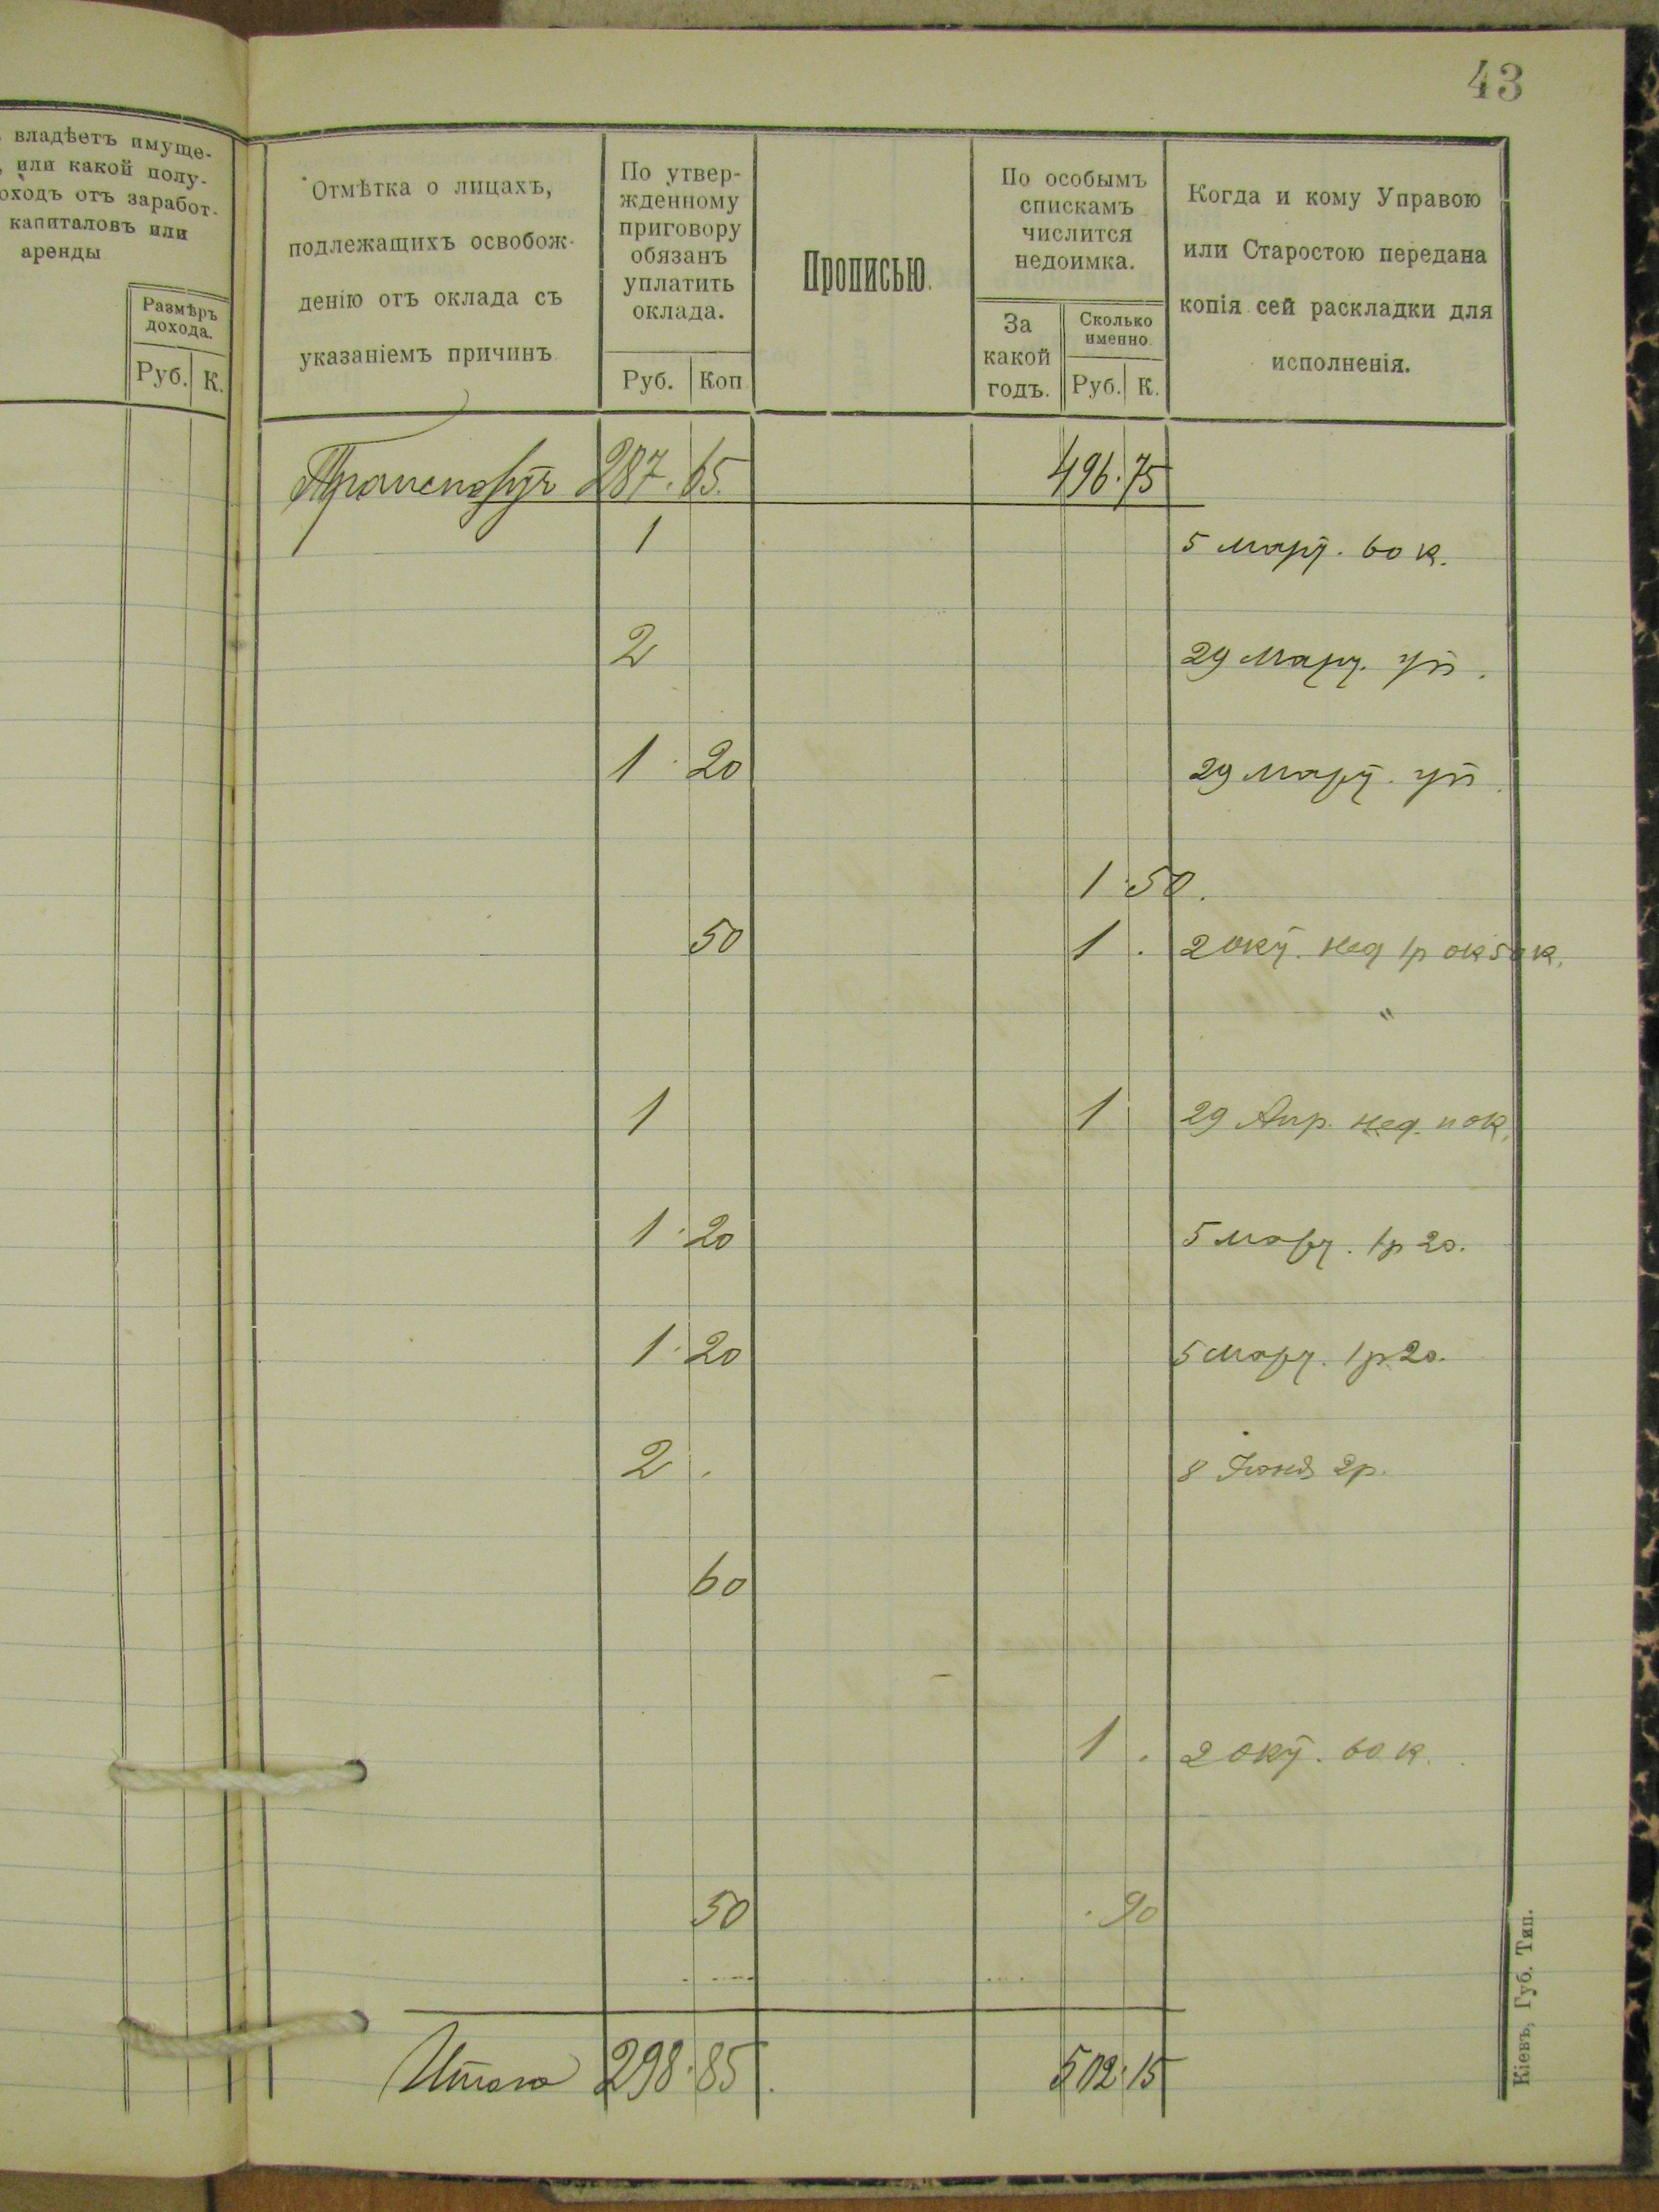 43
владѣетъ имуще-
или какой полу-
оходъ отъ заработ-
капиталовъ или
аренды
Размѣръ
дохода.
Руб. К.
Отмѣтка о лицахъ,
подлежащихъ освобож-
денію отъ оклада съ
указаніемъ причинъ
По утвер-
жденному
приговору
обязанъ
уплатить
оклада.
Руб. Коп
Прописью.
По особымъ
спискамъ
числится
недоимка.
За
какой
годъ.
Сколько
именно
Руб. К.
Когда и кому Управою
или Старостою передана
копія сей раскладки для
исполненія.
Транспортъ 287. 65. 496. 75
1 5 март. 60 к.
2 29 март. уп.
1. 20 29 март. уп
1. 50.
50 1. 2 окт. нед 1р ок 50 к.
"
1 1 29 Апр. нед. и ок.
1. 20 5 март. 1р 20.
1. 20 5 март. 1р 20.
2. 8 Іюня 2р.
60
1. 2 окт. 60 к.
50 . 90
Итого 298. 85. 502. 15
Кіевъ, Губ. Тип.